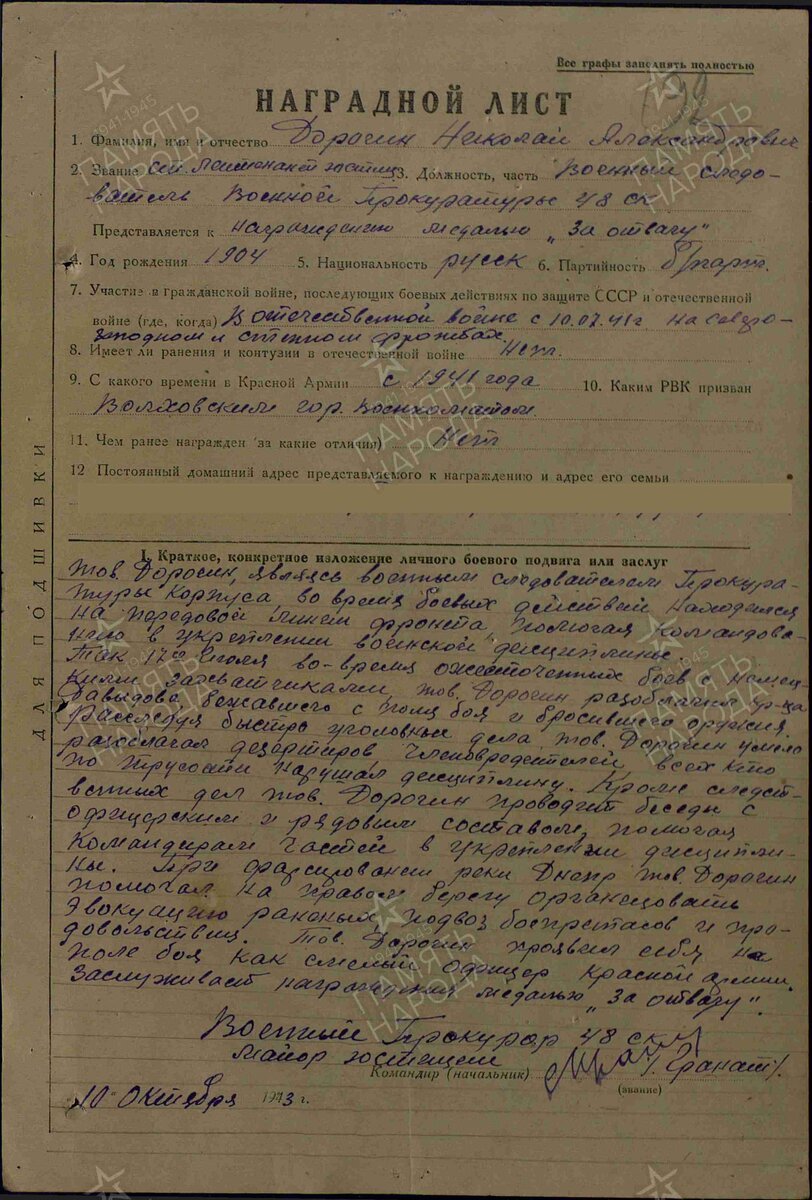 Все графы заполнять полностью
НАГРАДНОЙ ЛИСТ
1. Фамилия, имя и отчество Дорогин Николай Александрович
2. Звание ст. лейтенант юстиции 3. Должность, часть Военный следо-
ватель Военной Прокуратуры 48 ск
Представляется к награждению медалью „За отвагу"
4. Год рождения 1904 5. Национальность русск 6. Партийность б/парт.
7. Участие в гражданской войне, последующих боевых действиях по защите СССР и отечественной
войне (где, когда) В отечественной войне с 10.07.41г на Северо-
западном и степном фронтах
8. Имеет ли ранения и контузии в отечественной войне Нет.
9. С какого времени в Красной Армии с 1941 года 10. Каким РВК призван
Волховским гор. Военкоматом.
11. Чем ранее награжден (за какие отличия) Нет
12 Постоянный домашний адрес представляемого к награждению и адрес его семьи
ДЛЯ ПОДШИВКИ
I. Краткое, конкретное изложение личного боевого подвига или заслуг
Тов. Дорогин, являясь военным следователем Прокура-
туры Корпуса во время боевых действий находился
на передовой линии фронта помогая командова-
нию в укреплении воинской дисциплины.
Так 17го июля во-время ожесточенных боев с немец-
кими захватчиками, тов. Дорогин разоблачил кр-ца
Давыдова, бежавшего с поля боя и бросившего оружия.
Расследуя быстро уголовные дела тов. Дорогин умело
разоблачал дезертиров членовредителей, всех кто
по трусости нарушал дисциплину. Кроме следст-
венных дел тов. Дорогин проводит беседы с
офицерским и рядовым составом, помогая
Командирам частей в укреплении дисципли-
ны. При форсировании реки Днепр тов. Дорогин
помогал на правом берегу организовать
Эвакуацию раненых, подвоз боеприпасов и про-
довольствия. Тов. Дорогин проявил себя на
поле боя как смелый офицер Красной армии.
Заслуживает награждения медалью „За отвагу".
Военный Прокурор 48 ск
майор юстиции
Командир (начальник) /Гранат/.
(звание)
„10" Октября 1943 г.